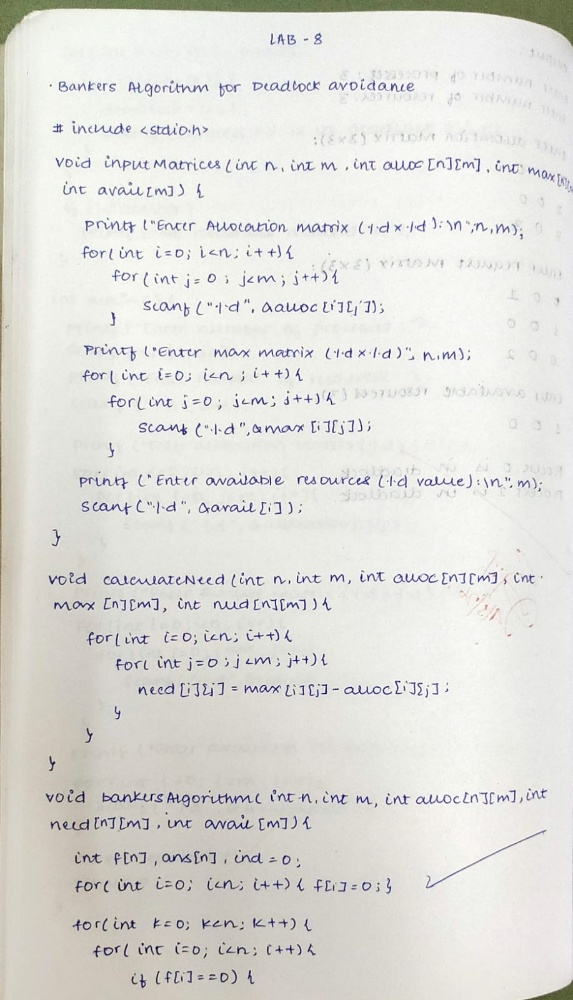 LAB - 8
· Bankers Algorithm for Deadlock avoidance
# include <stdio.h>
void inputMatrices (int n, int m, int alloc [n][m], int max [n]
int avail [m]) {
printf ("Enter Allocation matrix (%d x %d):\n", n, m);
for(int i=0; i<n; i++){
for (int j=0; j<m; j++){
scanf ("%d", &alloc [i][j]);
}
Printf ("Enter max matrix (%d x %d)", n, m);
for(int i=0; i<n; i++){
for(int j=0; j<m; j++){
scanf ("%d", &max [i][j]);
}
printf ("Enter available resources (%d value):\n", m);
scanf ("%d", &avail [i]);
}
void calculateNeed (int n, int m, int alloc [n][m], int
max [n][m], int need [n][m]) {
for(int i=0; i<n; i++){
for( int j=0; j<m; j++){
need [i][j] = max [i][j] - alloc [i][j];
}
}
}
void bankersAlgorithm( int n, int m, int alloc[n][m], int
need [n][m], int avail [m]) {
int f[n], ans[n], ind = 0;
for( int i=0; i<n; i++) { f[i]=0;}
for(int k=0; k<n; k++) {
for( int i=0; i<n; i++){
if (f[i]==0) {